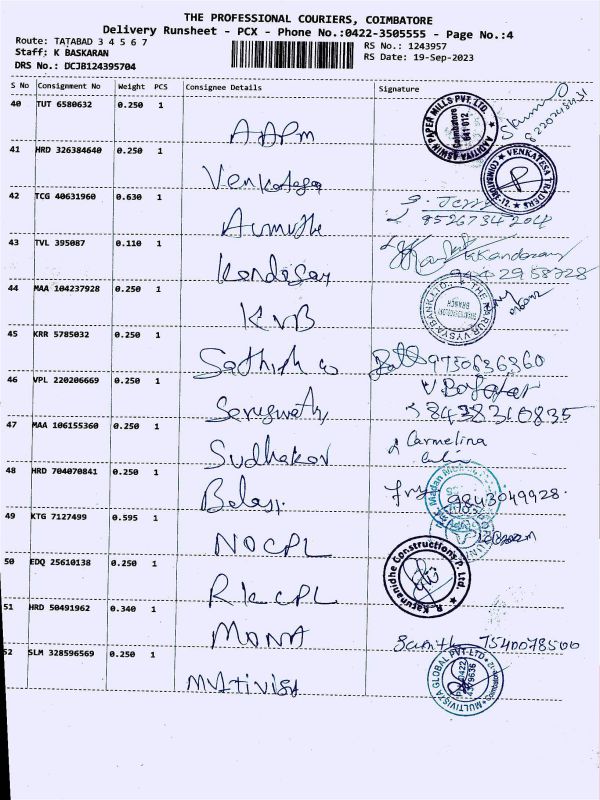 THE PROFESSIONAL COURIERS, COIMBATORE
Delivery Runsheet - PCX - Phone No.:0422-3505555 - Page No.:4
Route: TATABAD 3 4 5 6 7
RS No.: 1243957
Staff: K BASKARAN
RS Date: 19-Sep-2023
DRS No.: DCJB124395704
S No Consignment No Weight PCS Consignee Details Signature
40 TUT 6580632 0.250 1
AAPM
41 HRD 326384640 0.250 1
Venkatesa
VENKATESA TRADERS
42 TCG 40631960 0.630 1
9526734204
43 TVL 395087 0.110 1
Kandasay
KKandasamy
44 MAA 104237928 0.250 1
KVB
THE KARUR VYSYA BANK LTD.
BRANCH
45 KRR 5785032 0.250 1
Sathish
9750636360
46 VPL 220206669 0.250 1
8428310835
47 MAA 106155360 0.250 1
Sudhakar
Carmelina
48 HRD 704070841 0.250 1
Balaji
9843049928
49 KTG 7127499 0.595 1
NOCPL
50 EDQ 25610138 0.250 1
RKCPL
R.Karunanidhe Constructions P. Ltd.
51 HRD 50491962 0.340 1
MONA
7540078500
52 SLM 328596569 0.250 1
Multivista
MULTIVISTA GLOBAL PVT-LTD